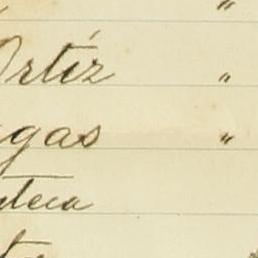 "
Ortíz "
gas "
teca